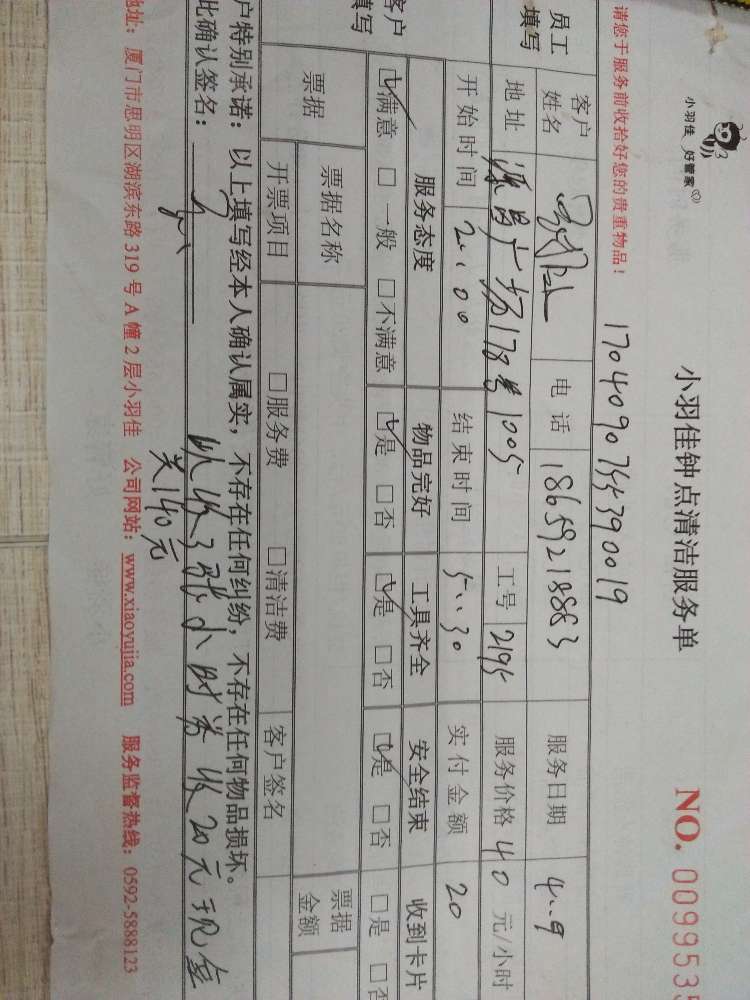 小羽佳 好管家
小羽佳钟点清洁服务单
NO. 0099535
请您于服务前收拾好您的贵重物品！
1704090744390019
员工填写 客户姓名 电话 18659218883 服务日期 4..9
地址 源昌广场178号1005 工号 2195 服务价格 40 元/小时
开始时间 2:00 结束时间 5:30 实付金额 20
客户填写 服务态度 物品完好 工具齐全 安全结束 收到卡片
☑满意 □一般 □不满意 ☑是 □否 ☑是 □否 ☑是 □否 □是 □否
票据 票据名称 票据金额
开票项目 □服务费 □清洁费 客户签名
户特别承诺：以上填写经本人确认属实，不存在任何纠纷，不存在任何物品损坏。
此确认签名： 收 小时券 收20元现金
140元
地址：厦门市思明区湖滨东路319号A幢2层小羽佳 公司网站：www.xiaoyujia.com 服务监督热线：0592-5888123